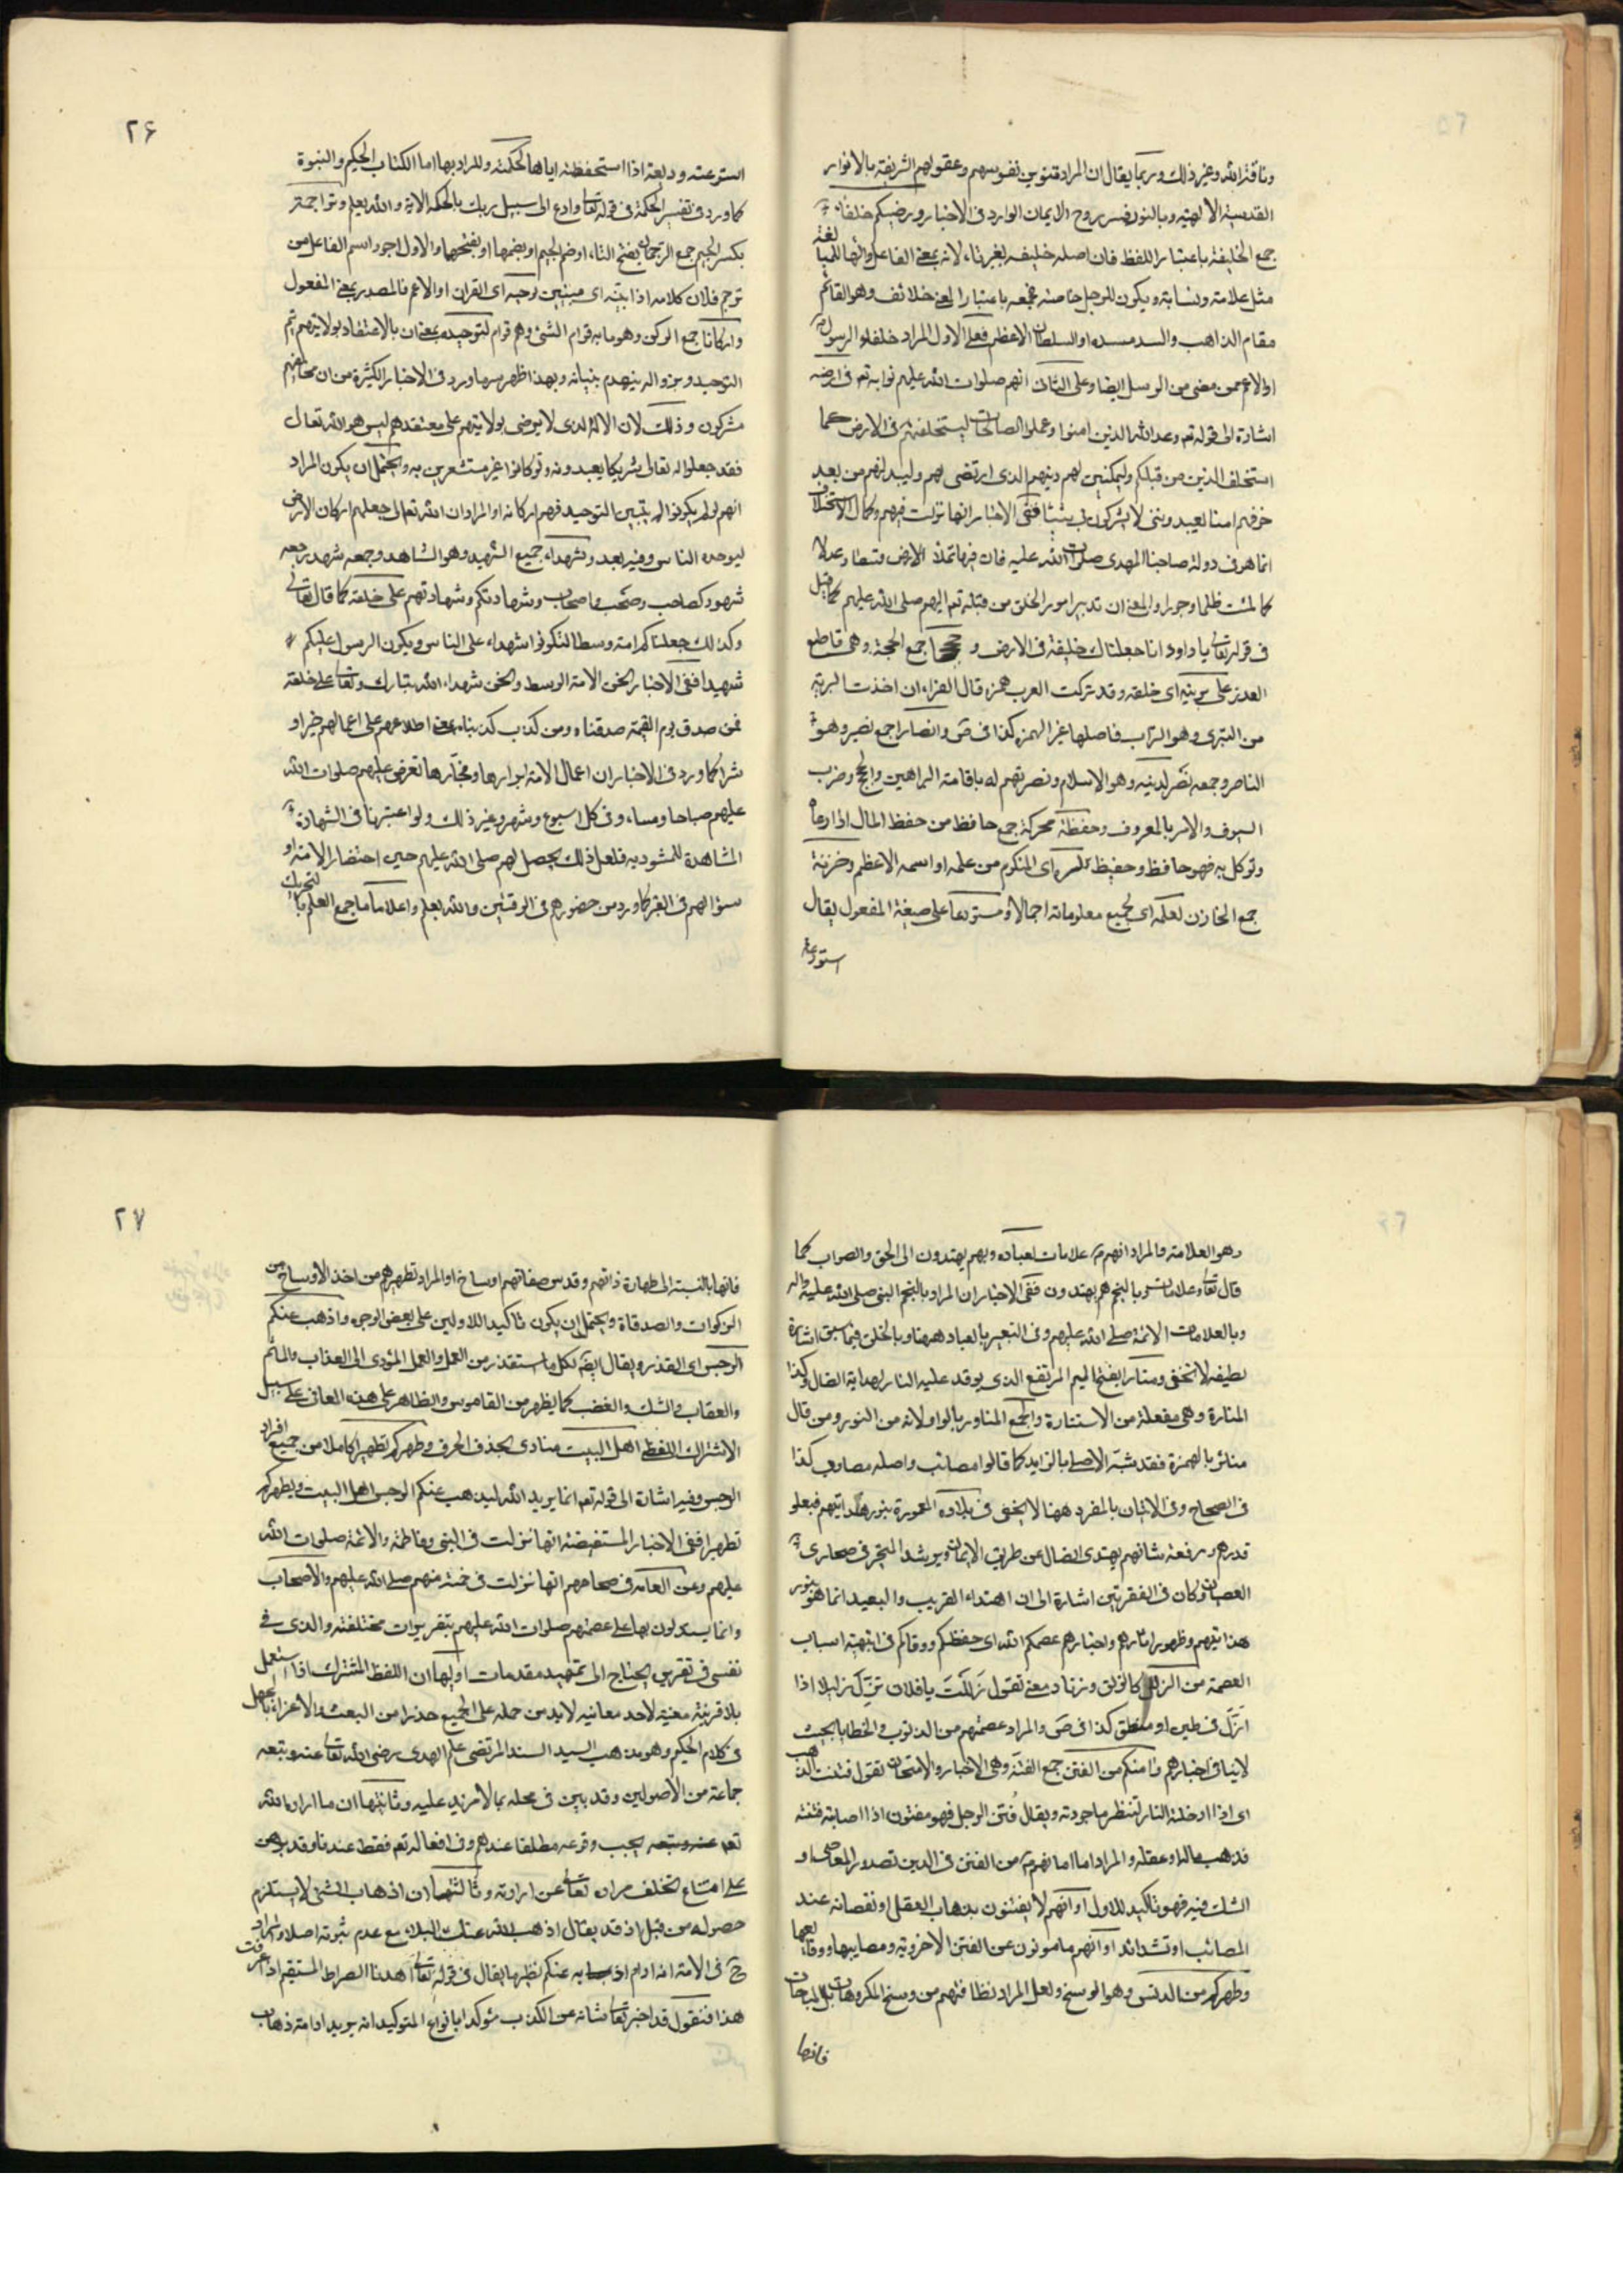 وناقة الله وغير ذلك وربما يقال ان المراد تنوير نفوسهم وعقولهم الشريفة بالانوار
القدسية الالهية وبالنور فسر روح الايمان الوارد في الاخبار ورضيكم خلفاء
جمع الخليفة باعتبار اللفظ فان اصله خليف بغير تاء لانه بمعنى الفاعل والتاء للمبالغة
مثل علامة ونسابة ويكون للرجل خاصة فجمعه باعتبار المعنى خلائف وهو القائم
مقام الذاهب والساد مسده او السلطان الاعظم فعلى الاول المراد خلفاء الرسول
او الاعم ممن مضى من الرسل ايضا وعلى الثاني انهم صلوات الله عليهم نوابه تعم في ارضه
اشارة الى قوله تعم وعد الله الذين امنوا وعملوا الصالحات ليستخلفنهم في الارض كما
استخلف الذين من قبلكم وليمكنن لهم دينهم الذي ارتضى لهم وليبدلنهم من بعد
خوفهم امنا يعبدونني لا يشركون بي شيئا ففي الاخبار انها نزلت فيهم وكمال الاستخلاف
انما هو في دولة صاحبنا المهدي صلوات الله عليه فان فيها تملأ الارض قسطا وعدلا
كما ملئت ظلما وجورا والمعنى ان تدبير امور الخلق من قبله تعم اليهم صلى الله عليهم كما قيل
في قوله تعالى يا داود انا جعلناك خليفة في الارض و حججا جمع الحجة وهي قاطع
العذر على بريته اي خلقه وقد تركت العرب همزه قال الفراء ان اخذت البرية
من البري وهو التراب فاصلها غير الهمزه كذا في ص وانصارا جمع نصير وهو
الناصر وجمعه نصر لدينه وهو الاسلام ونصرتهم له باقامة البراهين والحجج وضرب
السيوف والامر بالمعروف وحفظة محركة جمع حافظ من حفظ المال اذا رعاه
وتوكل به فهو حافظ وحفيظ لسره اي المكتوم من علمه او اسمه الاعظم وخزنة
جمع الخازن لعلمه اي لجميع معلوماته اجمالا ومستودعا على صيغة المفعول يقال
استودعته
٢۶
استودعته وديعة اذا استحفظته اياها لحكمته والمراد بها اما الكتاب الحكيم والنبوة
كما ورد في تفسير الحكمة في قوله تعالى وادع الى سبيل ربك بالحكمة الاية والله يعلم وتراجمة
بكسر الجيم جمع الترجمان بفتح التاء او ضم الجيم او بضمهما او بفتحهما والاول اجود اسم الفاعل من
ترجم فلان كلامه اذا بينه اي مبينين لوحيه اي القران او الاعم فالمصدر بمعنى المفعول
واركانا جمع الركن وهو ما به قوام الشئ وهم قوام لتوحيده بمعنى ان بالاعتقاد بولايتهم يتم
التوحيد وبزواله ينهدم بنيانه وبهذا اظهر سر ما ورد في الاخبار الكثيرة من ان مخالفيهم
مشركون وذلك لان الاله الذي لا يرضى بولايتهم على معتقدهم ليس هو الله تعالى
فقد جعلوا له تعالى شريكا يعبدونه ولو كانوا غير مستشعرين به ويحتمل ان يكون المراد
انهم لو لم يكونوا لم يتبين التوحيد فهم اركانه او المراد ان الله تعالى جعلهم اركان الارض
ليوحده الناس وفيه بعد وشهداء جميع الشهيد وهو الشاهد وجمعه شهد وجمعه
شهود كصاحب وصحب واصحاب وشهادتكم وشهادتهم على خلقه كما قال تعالى
وكذالك جعلناكم امة وسطا لتكونوا شهداء على الناس ويكون الرسول عليكم
شهيدا ففي الاخبار نحن الامة الوسط ونحن شهداء الله تبارك وتعالى على خلقه
فمن صدق يوم القيمة صدقناه ومن كذب كذبناه بمعنى اطلاعهم على اعمالهم خيرا و
شرا كما ورد في الاخبار ان اعمال الامة ابرارها وفجارها تعرض عليهم صلوات الله
عليهم صباحا ومساء وفي كل اسبوع وشهر وغير ذلك ولو اعتبرنا في الشهادة
المشاهدة للمشهود به فلعل ذلك يحصل لهم صلى الله عليهم حين احتضار الامة او
سؤالهم في القبر كما ورد من حضورهم في الوقتين والله يعلم واعلاما جمع العلم بالتحريك
وهو العلامة والمراد انهم علامات لعباده وبهم يهتدون الى الحق والصواب كما
قال تعالى وعلامات وبالنجم هم يهتدون ففي الاخبار ان المراد بالنجم النبي صلى الله عليه واله
وبالعلامات الائمة صلى الله عليهم وفي التعبير بالعباد ههنا وبالخلق فيما سبق اشارة
لطيفة لا تخفى ومنارا بفتح الميم المرتفع الذي يوقد عليه النار لهداية الضال وكذا
المنارة وهي مفعلة من الاستنارة والجمع المناور بالواو لانه من النور ومن قال
منائر بالهمزة فقد شبه الاصلي بالزايد كما قالوا مصائب واصله مصاوب كذا
في الصحاح وفي الاتيان بالمفرد ههنا لا يخفى في بلاده المعمورة بنور هدايتهم فبعلو
قدرهم ورفعة شانهم يهتدي الضال عن طريق الايمان ويرشد المتحير في صحاري
العصيان وكان في الفقرتين اشارة الى ان اهتداء القريب والبعيد انما هو بنور
هدايتهم وظهور اثارهم واخبارهم عصمكم الله اي حفظكم ووقاكم فانتهيته اسباب
العصمة من الزلل كالزلق وزنا ومعنى تقول زللت يا فلان تزل زليلا اذا
ازل في طين او منطق كذا في ص والمراد عصمتهم من الذنوب والخطايا بحيث
لا ينافي اختيارهم وامنكم من الفتن جمع الفتنة وهي الاختبار والامتحان تقول فتنت الذهب
اي اذا ادخلته النار لتنظر ما جودته ويقال فتن الرجل فهو مفتون اذا اصابته فتنة
فذهب ماله او عقله والمراد اما امانهم من الفتن في الدين بصدور المعاصي او
الشك فيه فهو تاكيد للاول او انهم لا يفتنون بذهاب العقل او نقصانه عند
المصائب او تشدائد او انهم مامونون عن الفتن الاخروية ومصايبها ووقايعها
وطهركم من الدنس وهو الوسخ ولعل المراد نظافتهم من وسخ المكروهات بل المباحات
فانها
٢٧
فانها بالنسبة الى طهارة ذاتهم وقدس صفاتهم اوساخ او المراد تطهيرهم من اخذ الاوساخ من
الزكوات والصدقاة ويحتمل ان يكون تاكيدا للاولين على بعض الوجوه واذهب عنكم
الرجس اي القذر ويقال ايضا لكل ما استقذر من العمل والعمل المؤدى الى العذاب والماثم
والعقاب والشك والغضب كما يظهر من القاموس والظاهر على هذه المعاني على سبيل
الاشتراك اللفظي اهل البيت منادى بحذف الحرف وطهركم تطهيرا كاملا من جميع افراد
الرجس وفيه اشارة الى قوله تعم انما يريد الله ليذهب عنكم الرجس اهل البيت ويطهركم
تطهيرا ففي الاخبار المستفيضة انها نزلت في النبي وفاطمة والائمة صلوات الله
عليهم وعن العامة في صحاحهم انها نزلت في خمسة منهم صلى الله عليهم والاصحاب
وانما يستدلون بها على عصمتهم صلوات الله عليهم بتقريرات مختلفة والذي في
نفسي في تقرير يحتاج الى تمهيد مقدمات اولها ان اللفظ المشترك اذا استعمل
بلا قرينة معينة لاحد معانيه لابد من حمله على الجميع حذرا من البعث والاغراء بالجهل
في كلام الحكيم وهو مذهب السيد السند المرتضى علم الهدى رضي الله تعالى عنه وتبعه
جماعة من الاصوليين وقد بين في محله بما لا مزيد عليه وثانيتها ان ما اراد الله
تعم عنه وتبعه يجب وقوعه مطلقا عندهم وفي افعاله تعم فقط عندنا وقد برهن
على امتناع تخلف مراده تعالى عن ارادته وثالثتها ان اذهاب الشئ لا يستلزم
حصوله من قبل اذ قد يقال اذهب الله عنك البلاء مع عدم ثبوته اصلا والمراد
ح في الاية انه ادام اذهابه عنكم نظير ما يقال في قوله تعالى اهدنا الصراط المستقيم اذا عرفت
هذا فنقول قد اخبر تعالى شانه عن الكذب مؤكدا بانواع التوكيد انه يريد ادامة ذهاب